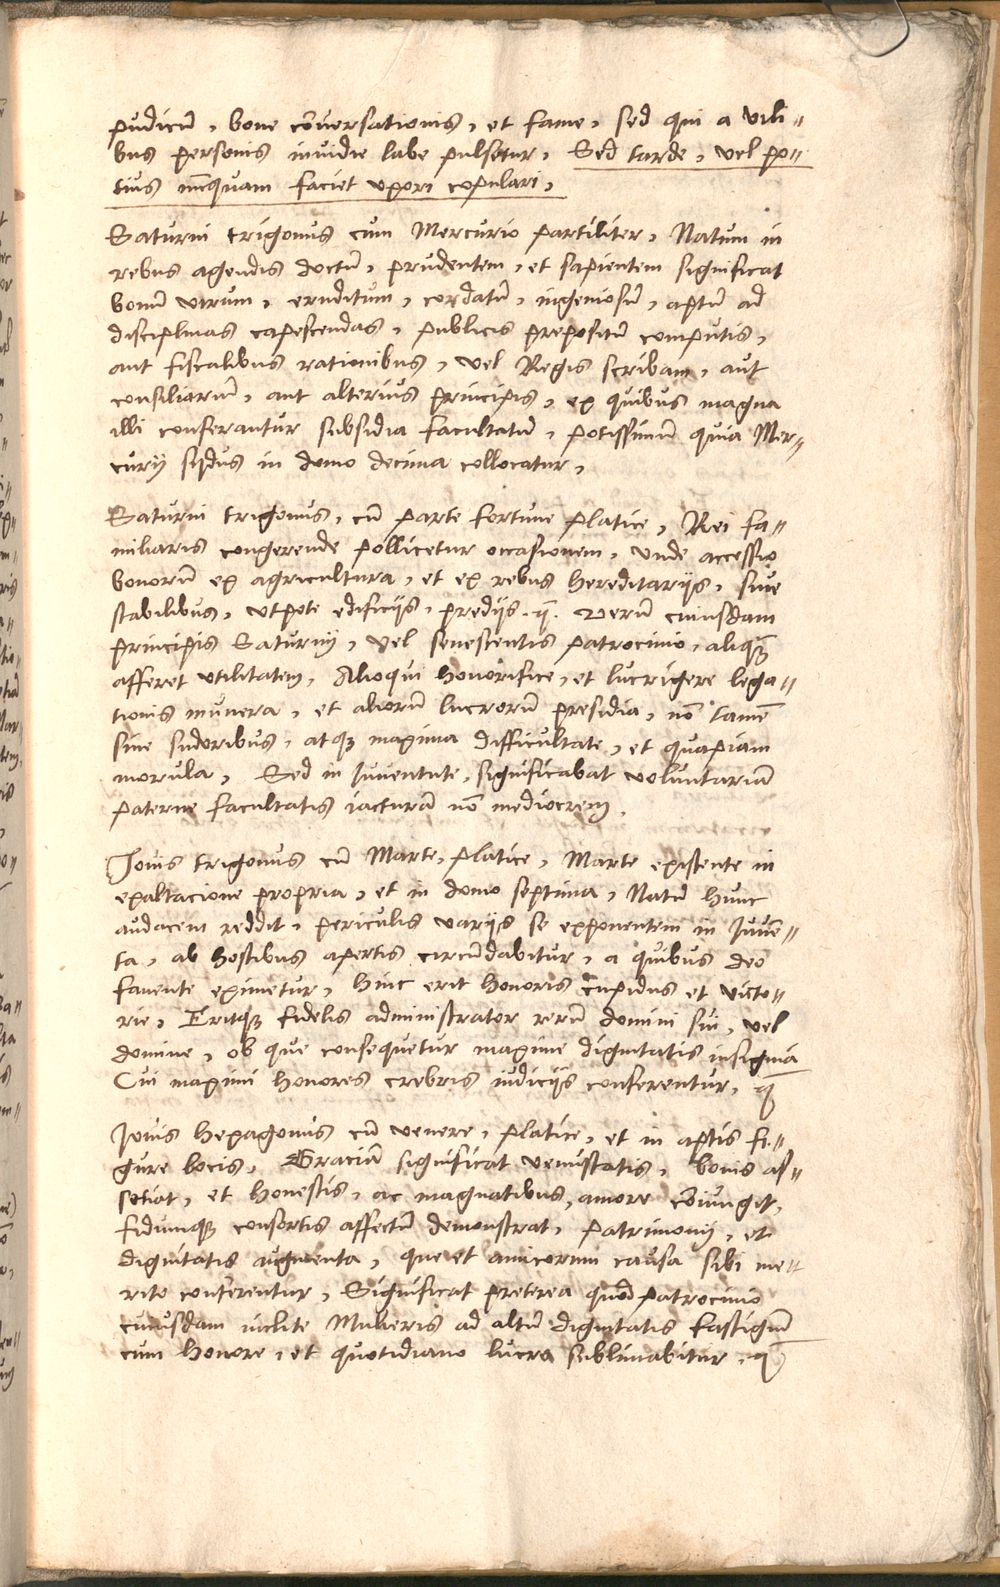 pudicū, bone cōuersationis, et fame, sed qui a vili„
bus personis inuidie labe pulsetur, Sed tarde, vel po„
tius nunquam faciet vxori copulari,
Saturni trigonus cum Mercurio partiliter, Natum in
rebus agendis doctū, prudentem, et sapientem significat
bonū virum, eruditum, cordatū, ingeniosū, aptū ad
disciplinas capescendas, publicis prepositū computis,
aut fiscalibus rationibus, vel Regis scribam, aut
consiliariū, aut alterius principis, ex quibus magna
illi conferantur subsidia facultatū, potissimū quia Mer„
curij sydus in domo decima collocatur,
Saturni trigonus, cū parte fortune platice, Rei fa„
miliaris congerende pollicetur occasionem, vnde accessio
bonorū ex agricultura, et ex rebus hereditarijs, siue
stabilibus, vtpote edificijs, predijs. Verū cuiusdam
principis Saturnij, vel senescentis patrocinio, aliquā
afferet vtilitatem, Alioqui honorifice, et lucrigere lega„
tionis munera, et aliorū lucrorū presidia, nō tamē
sine sudoribus, atqꝫ maxima difficultate, et quapiam
morula, Sed in Iuuentute, significabat voluntariā
paterne facultatis iacturā nō mediocrem,
Iouis trigonus cū Marte, platice, Marte existente in
exaltacione propria, et in domo septima, Natū hunc
audacem reddit, periculis varijs se exponentem in Iuuē„
ta, ab hostibus apertis circūdabitur, a quibus deo
fauente eximetur, hinc erit honoris cupidus et victo„
rie, Eritqꝫ fidelis administrator rerū domini sui, vel
domine, ob que consequetur maxime dignitatis insignia
Cui maximi honores crebris iudicijs conferentur,
Iouis hexagonus cū venere, platice, et in aptis fi„
gure locis, Graciā significat venustatis, bonis as„
sotiat, et honestis, ac magnatibus, amore cōiungit,
fidumqꝫ consortis affectū demonstrat, patrimonij, et
dignitatis augmenta, que et amicorum causa sibi me„
rito conferentur, Significat preterea quōd patrocinio
cuiusdam inclite Mulieris ad altū dignitatis fastigiū
cum honore, et quotidiano lucra sublimabitur,